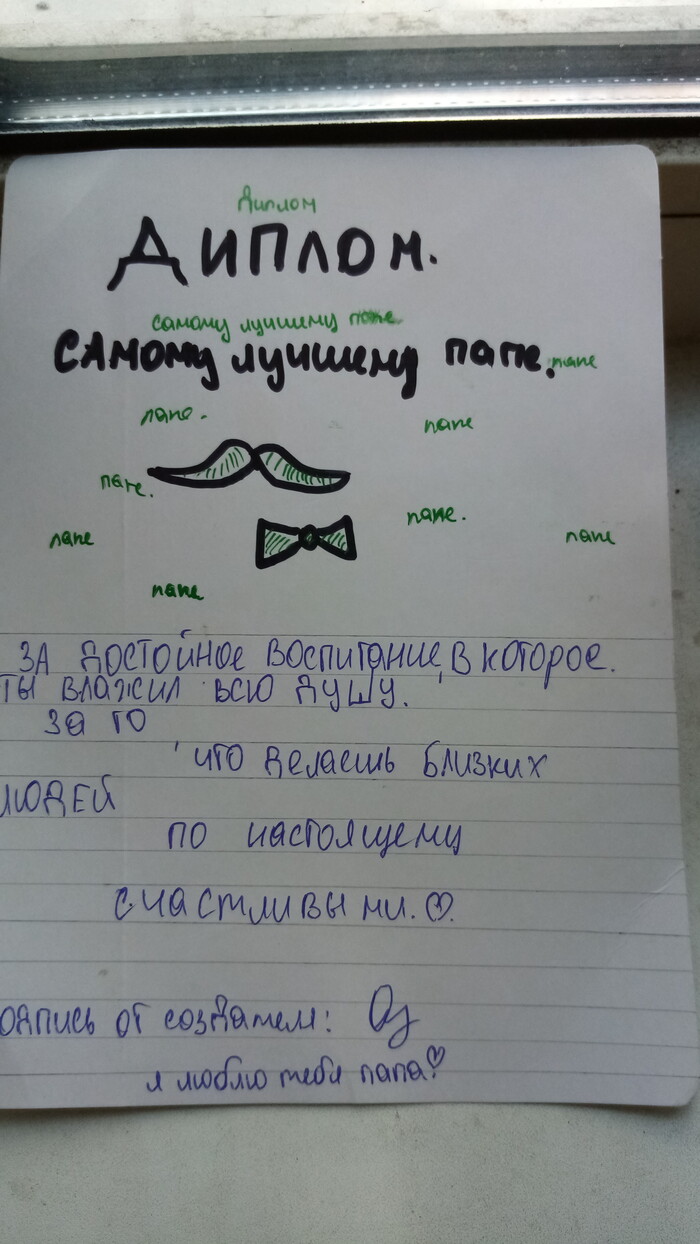 Диплом
Диплом.
самому лучшему папе.
Самому лучшему папе. папе
папе.
папе
папе.
папе.
папе
папе
папе
За достойное воспитание, в которое.
ты влажил всю душу.
За то
, что делаешь близких
людей
по настоящему
счастливыми. ♡.
одпись от создателя:
я люблю тебя папа! ♡